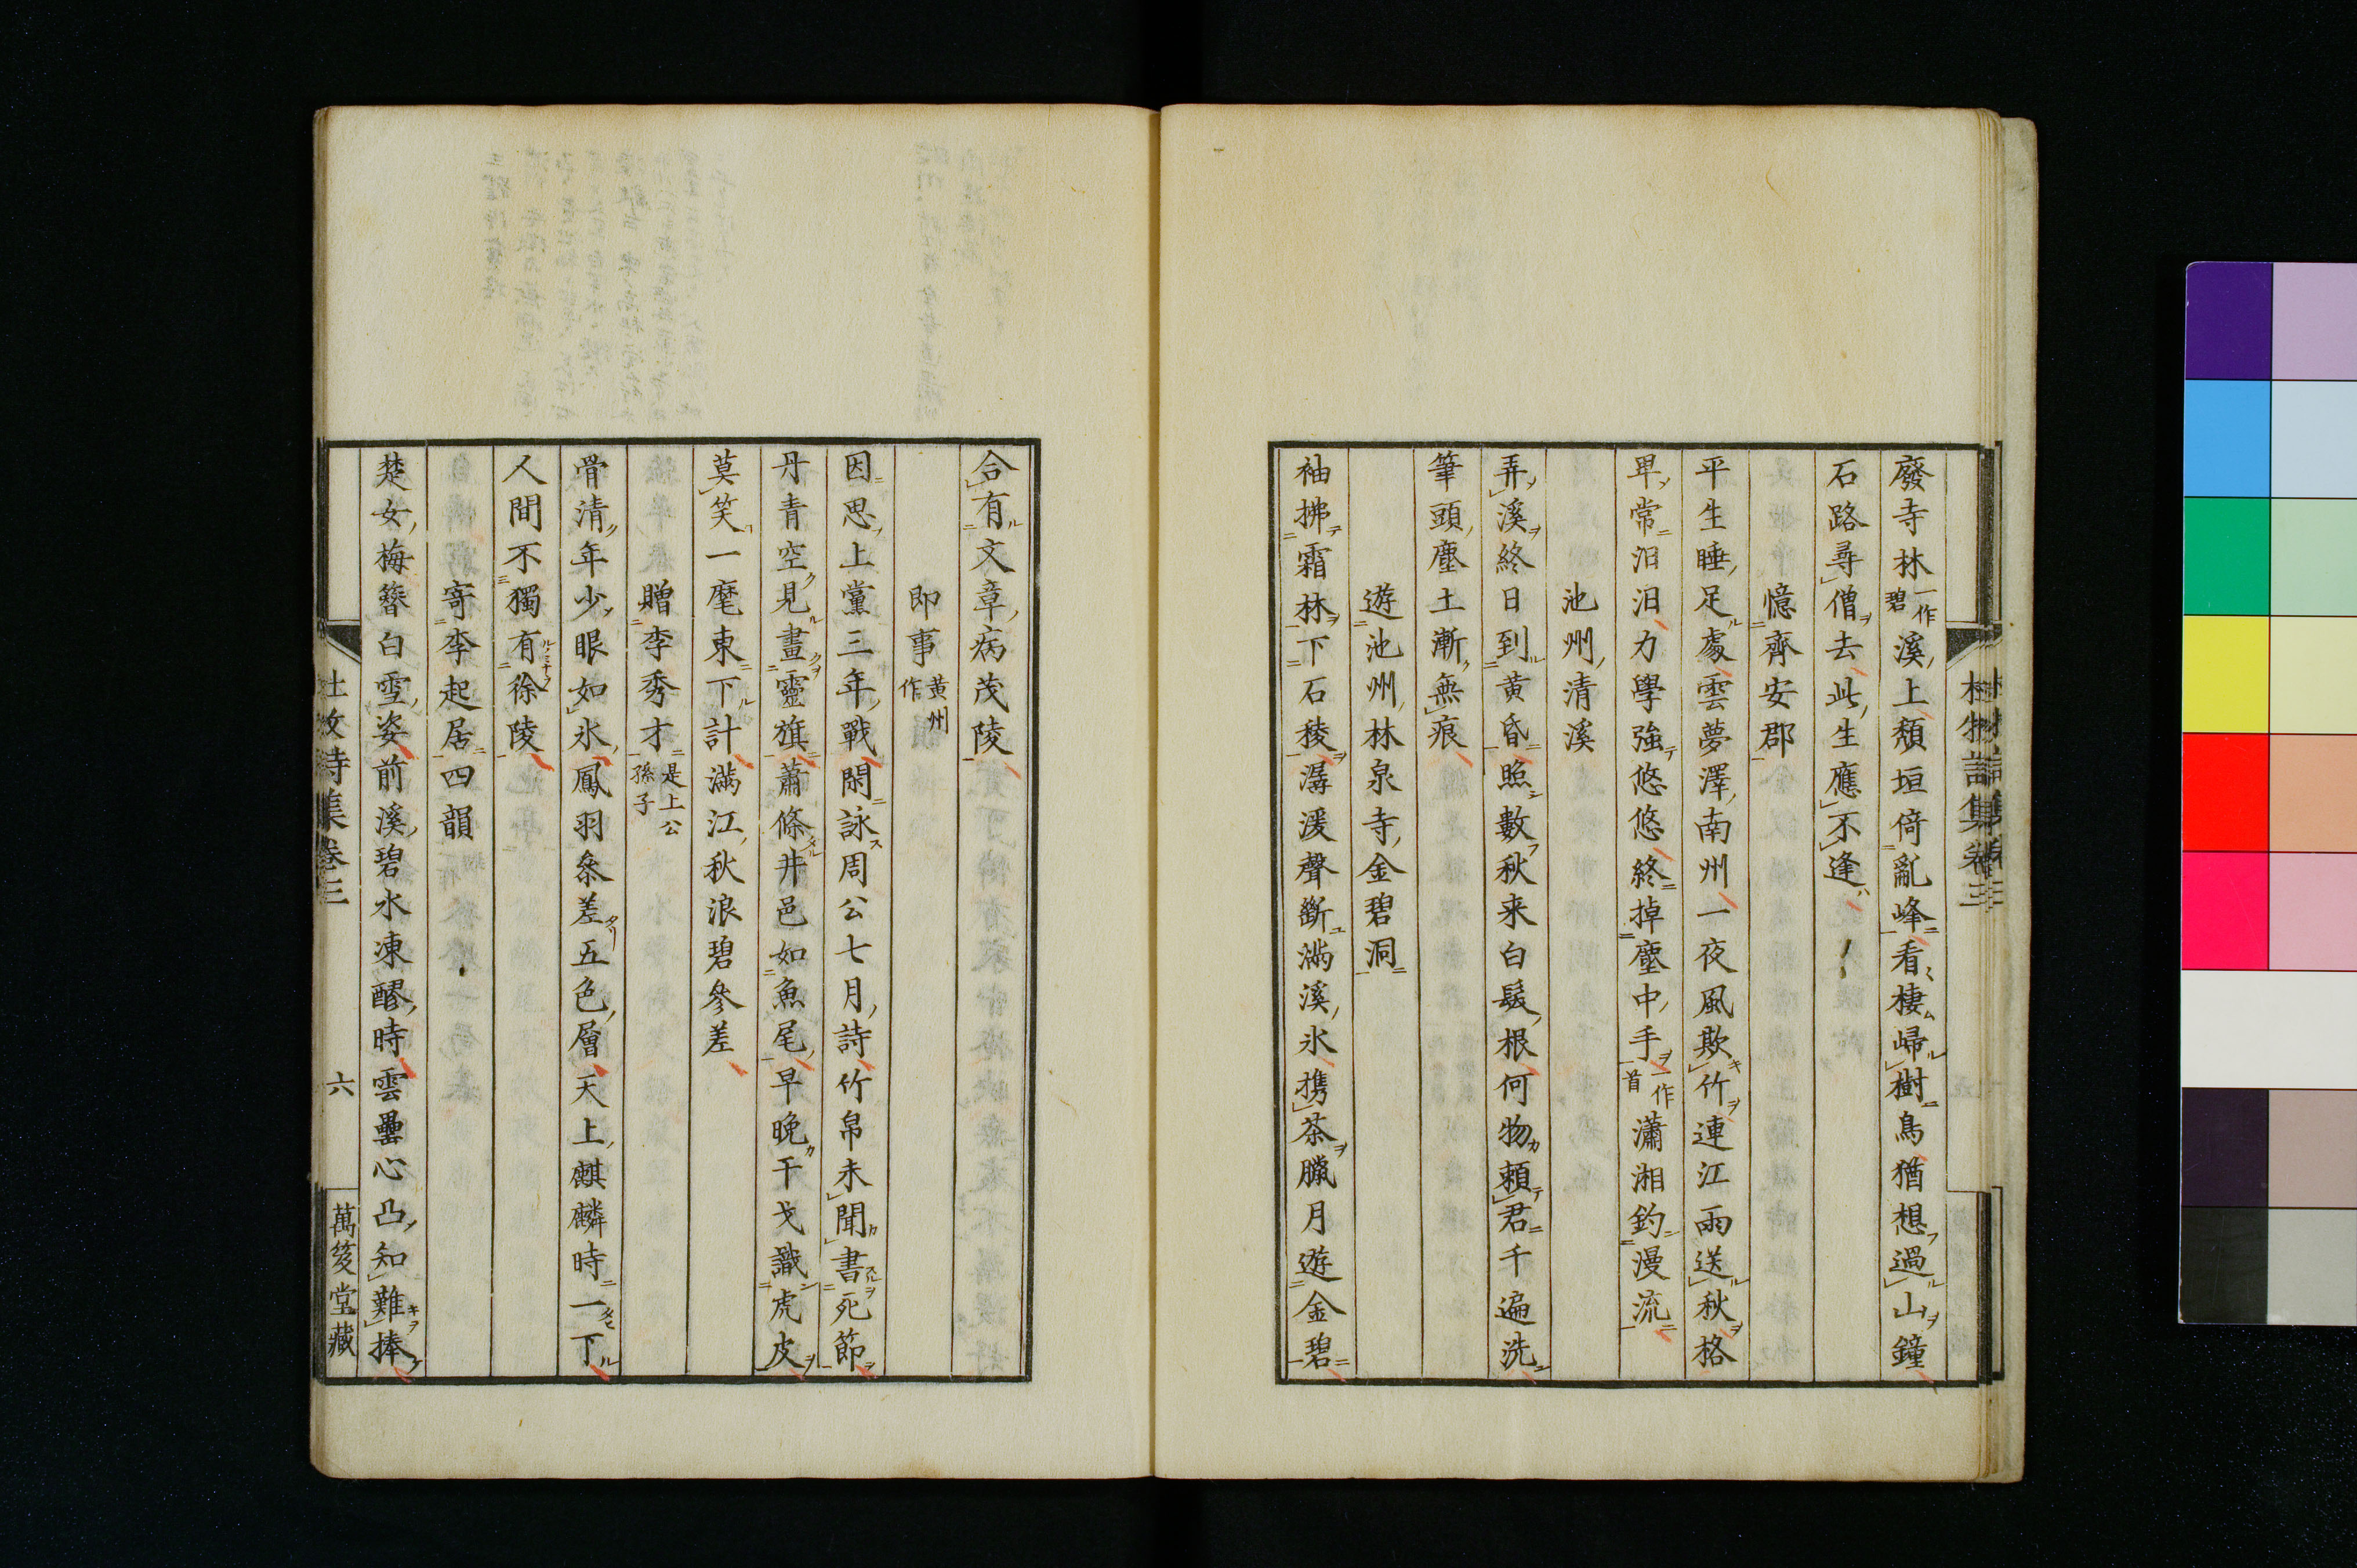 廢寺林一作碧溪上頹垣倚亂峰看棲歸樹鳥猶想過山鐘
石路尋僧去此生應不逢
憶齊安郡
平生睡足處雲夢澤南州一夜風欺竹連江雨送秋格
卑常汨汨力學強悠悠終掉塵中手一作首瀟湘釣漫流
池州清溪
弄溪終日到黄昏照數秋来白髮根何物頼君千遍洗
筆頭塵土漸無痕
遊池州林泉寺金碧洞
袖拂霜林下石稜潺湲聲斷滿溪氷携茶臘月遊金碧
合有文章病茂陵
即事黄州作
因思上黨三年戰閑詠周公七月詩竹帛未聞書死節
丹青空見畫靈旗蕭條井邑如魚尾早晚干戈識虎皮
莫笑一麾東下計滿江秋浪碧參差
贈李秀才是上公孫子
骨清年少眼如氷鳳羽叅差五色層天上麒麟時一下
人間不獨有徐陵
寄李起居四韻
楚女梅簪白雪姿前溪碧水凍醪時雲罍心凸知難捧
杜牧詩集卷三
六
萬笈堂藏